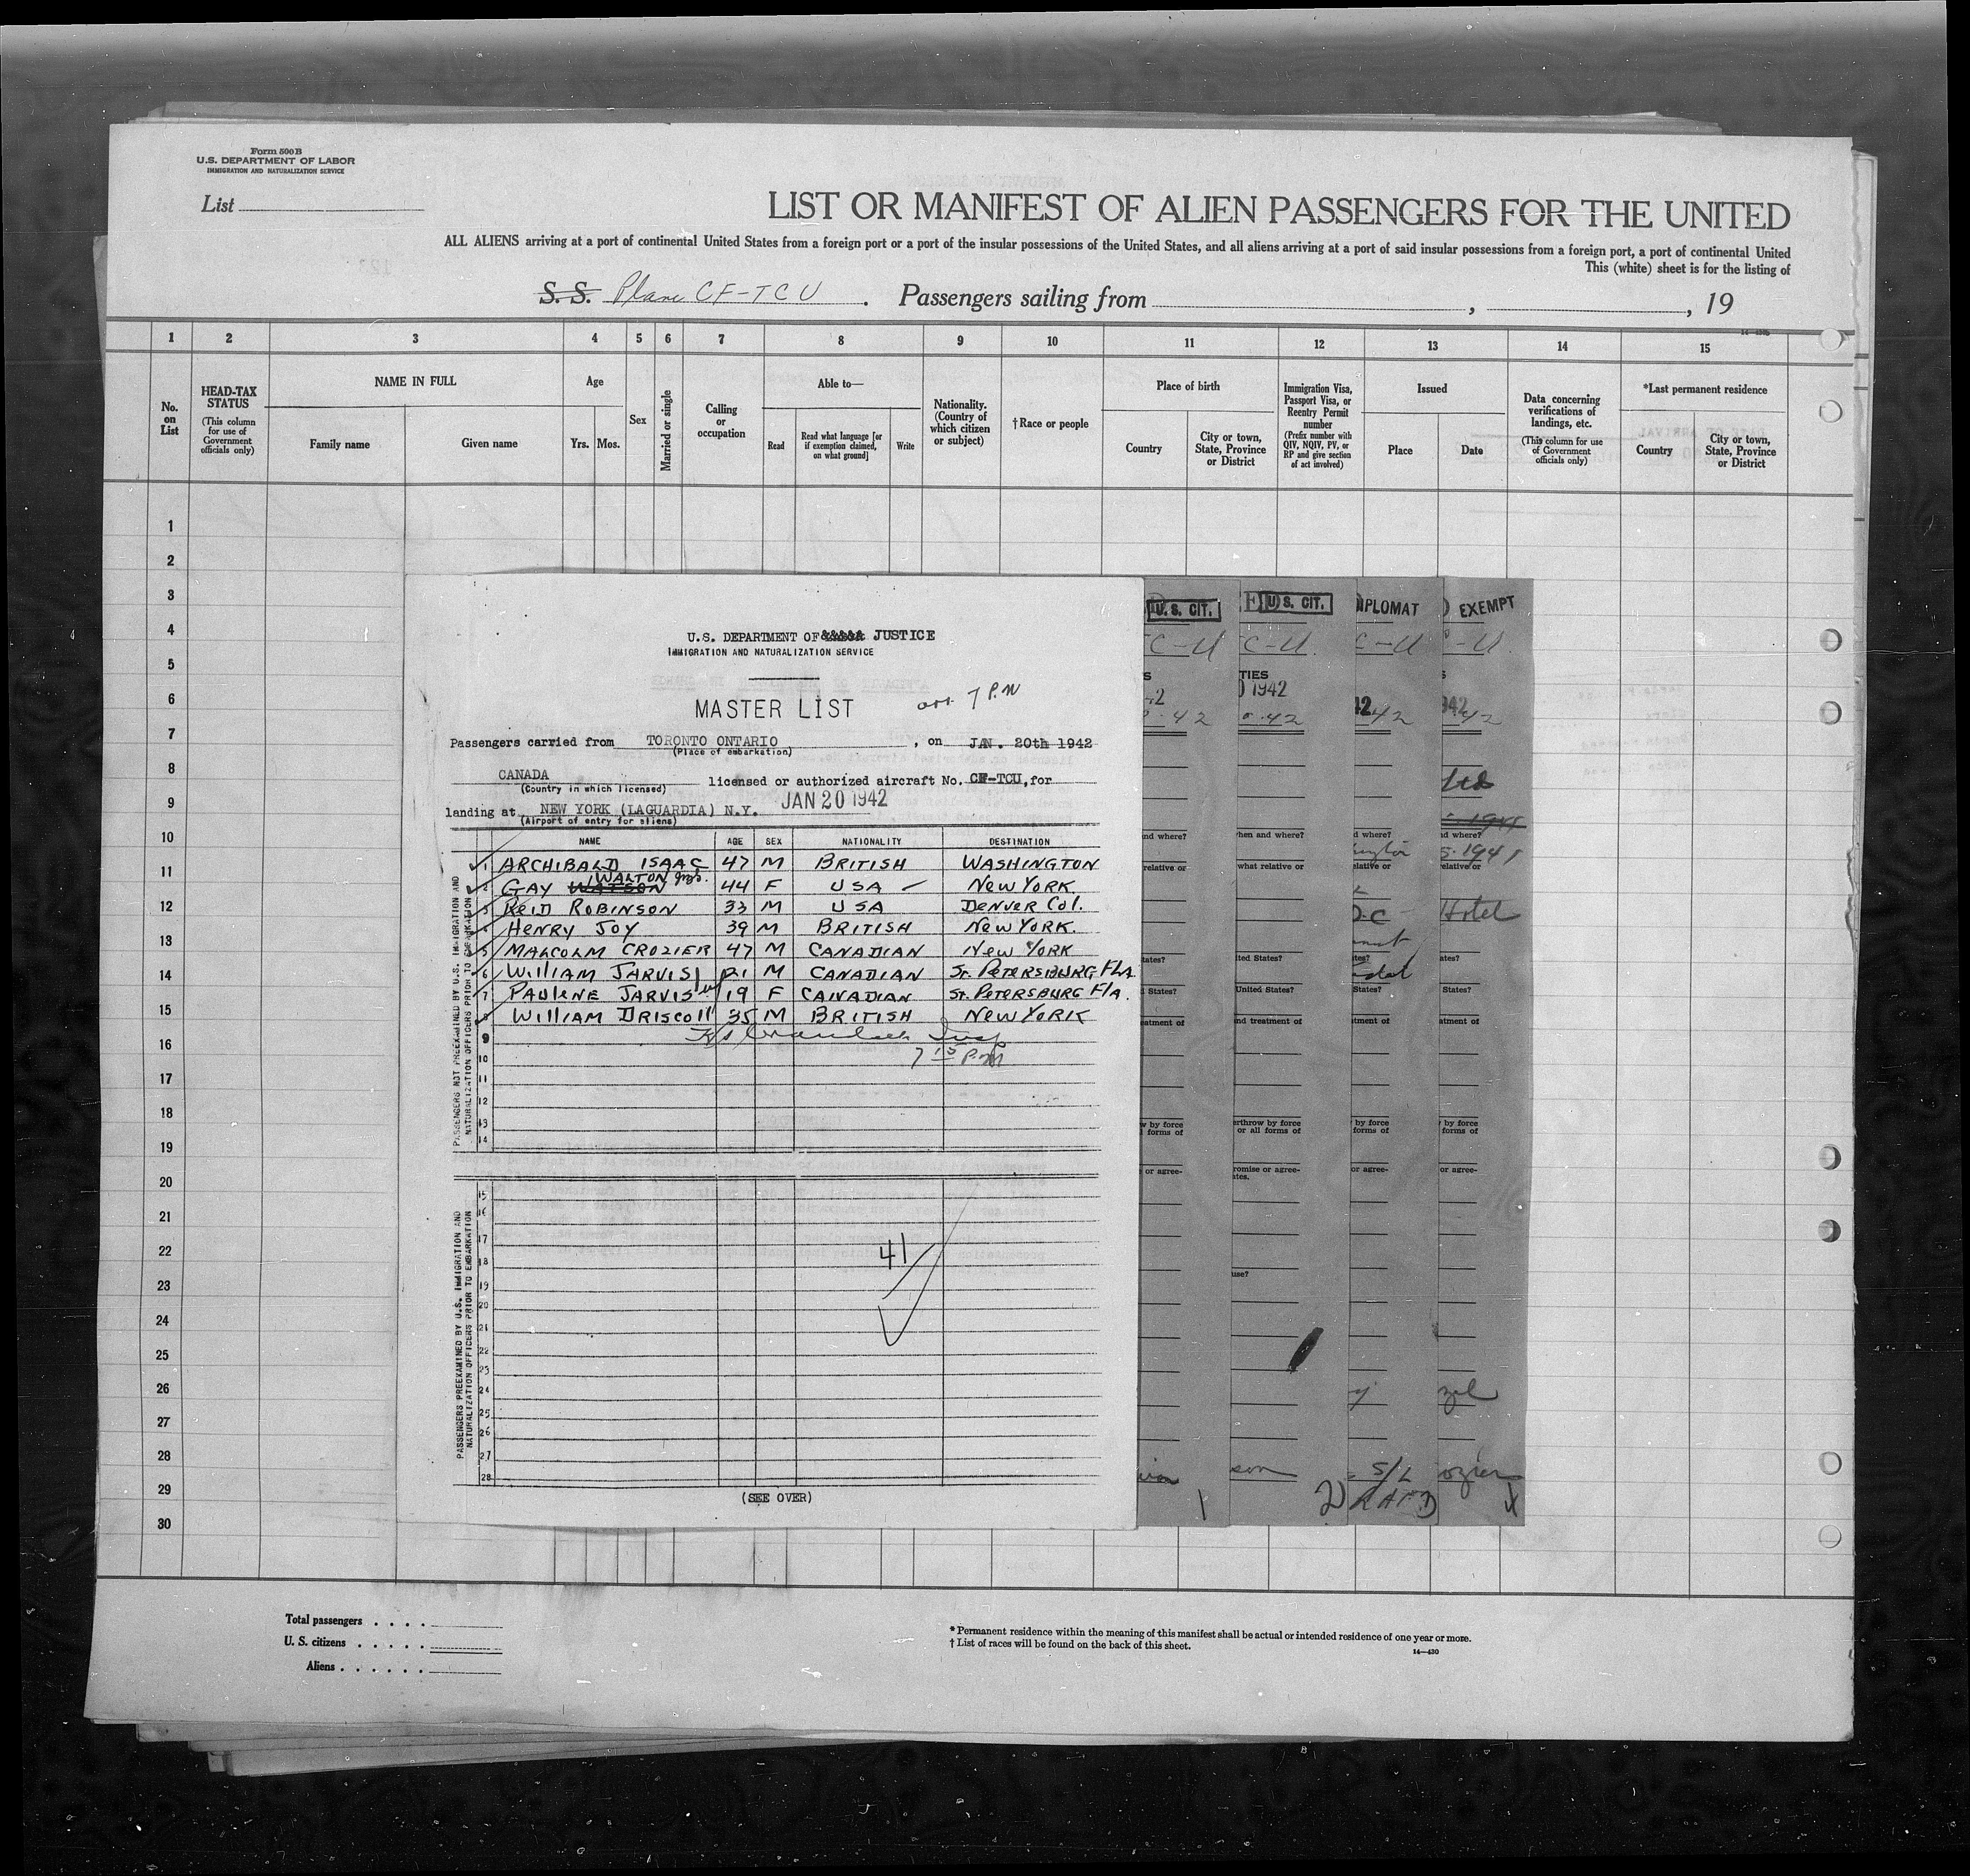 Form 500 B
U.S. DEPARTMENT OF LABOR
IMMIGRATION AND NATURALIZATION SERVICE
List
LIST OR MANIFEST OF ALIEN PASSENGERS FOR THE UNITED
ALL ALIENS arriving at a port of continental United States from a foreign port or a port of the insular possessions of the United States, and all aliens arriving at a port of said insular possessions from a foreign port, a port of continental United
This (white) sheet is for the listing of
S. S. Plane CF-TCU . Passengers sailing from , , 19
1 2 3 4 5 6 7 8 9 10 11 12 13 14 15
No. on List
HEAD-TAX STATUS
(This column for use of Government officials only)
NAME IN FULL
Family name
Given name
Age
Yrs. Mos.
Sex
Married or single
Calling or occupation
Able to—
Read
Read what language [or if exemption claimed, on what ground]
Write
Nationality. (Country of which citizen or subject)
†Race or people
Place of birth
Country
City or town, State, Province or District
Immigration Visa, Passport Visa, or Reentry Permit number
(Prefix number with QIV, NQIV, PV, or RP and give section of act involved)
Issued
Place
Date
Data concerning verifications of landings, etc.
(This column for use of Government officials only)
*Last permanent residence
Country
City or town, State, Province or District
1
2
3
4
5
6
7
8
9
10
11
12
13
14
15
16
17
18
19
20
21
22
23
24
25
26
27
28
29
30
U.S. DEPARTMENT OF JUSTICE
IMMIGRATION AND NATURALIZATION SERVICE
MASTER LIST
arr. 7 P.M
Passengers carried from TORONTO ONTARIO , on JAN. 20th 1942
(Place of embarkation)
CANADA licensed or authorized aircraft No. CF-TCU, for
(Country in which licensed)
landing at NEW YORK (LAGUARDIA) N.Y. JAN 20 1942
(Airport of entry for aliens)
NAME AGE SEX NATIONALITY DESTINATION
1 ARCHIBALD ISAAC 47 M BRITISH WASHINGTON
WALTON
2 GAY WATSON 44 F USA NEW YORK
3 REID ROBINSON 33 M USA DENVER COL.
4 HENRY JOY 39 M BRITISH NEW YORK.
5 MALCOLM CROZIER 47 M CANADIAN NEW YORK
6 WILLIAM JARVIS 21 M CANADIAN ST. PETERSBURG FLA
7 PAULENE JARVIS 19 F CANADIAN ST. PETERSBURG FLA.
8 WILLIAM DRISCOLL 35 M BRITISH NEW YORK
9
7 15 P.M
10
11
12
13
14
PASSENGERS NOT PREEXAMINED BY U.S. IMMIGRATION AND NATURALIZATION OFFICERS PRIOR TO EMBARKATION
15
16
17
18
19
20
21
22
23
24
25
26
27
28
41
PASSENGERS PREEXAMINED BY U.S. IMMIGRATION AND NATURALIZATION OFFICERS PRIOR TO EMBARKATION
(SEE OVER)
U. S. CIT.
U. S. CIT.
IPLOMAT
EXEMPT
C-U
C-U.
C-U
-U
TIES
1942
Hotel
nd where?
hen and where?
d where?
nd where?
relative or
what relative or
elative or
relative or
tates?
ited States?
ates?
ates?
States?
United States?
States?
States?
eatment of
nd treatment of
tment of
eatment of
w by force
erthrow by force
by force
by force
forms of
or all forms of
forms of
forms of
or agree-
romise or agree-
or agree-
or agree-
ates.
use?
son
S/L
ozier
1
2
RAF
3
Total passengers . . . .
U. S. citizens . . . . .
Aliens . . . . . .
* Permanent residence within the meaning of this manifest shall be actual or intended residence of one year or more.
† List of races will be found on the back of this sheet.
14—430